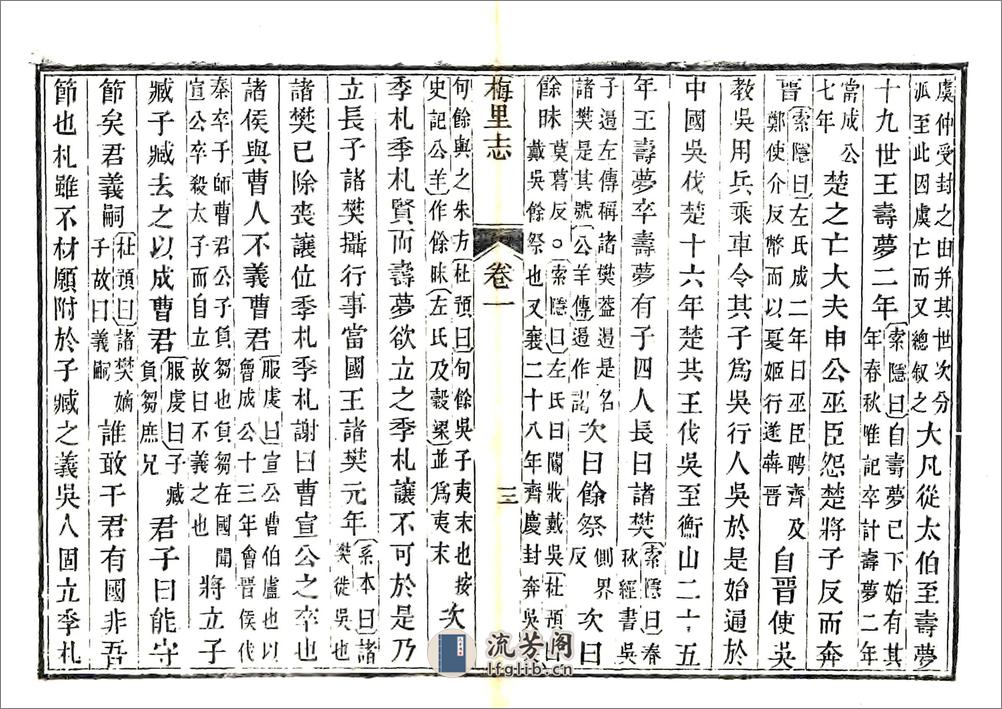 虞仲受封之由并其世次分
派至此因虞亡而又總叙之
大凡從太伯至壽夢
十九世王壽夢二年
索隱曰自壽夢已下始有其
年春秋唯記卒計壽夢二年
當成公
七年
楚之亡大夫申公巫臣怨楚將子反而奔
晉
索隱曰左氏成二年曰巫臣聘齊及
鄭使介反幣而以夏姬行遂犇晉
自晉使吳
教吳用兵乘車令其子爲吳行人吳於是始通於
中國吳伐楚十六年楚共王伐吳至衡山二十五
年王壽夢卒壽夢有子四人長曰諸樊
索隱曰春
秋經書吳
子遏左傳稱諸樊蓋遏是名
諸樊是其號公羊傳遏作謁
次曰餘祭
側界
反
次曰
餘昧
莫葛反○索隱曰左氏曰閽戕戴吳杜預曰
戴吳餘祭也又襄二十八年齊慶封奔吳
梅里志
卷一
三
句餘與之朱方杜預曰句餘吳子夷末也按
史記公羊作餘昧左氏及穀梁並爲夷末
次曰
季札季札賢而壽夢欲立之季札讓不可於是乃
立長子諸樊攝行事當國王諸樊元年
系本曰諸
樊徙吳也
諸樊已除喪讓位季札季札謝曰曹宣公之卒也
諸侯與曹人不義曹君
服虔曰宣公曹伯盧也以
魯成公十三年會晉侯伐
秦卒于師曹君公子負芻也負芻在國聞
宣公卒殺太子而自立故曰不義之也
將立子
臧子臧去之以成曹君
服虔曰子臧
負芻庶兄
君子曰能守
節矣君義嗣
杜預曰諸樊嫡
子故曰義嗣
誰敢干君有國非吾
節也札雖不材願附於子臧之義吳人固立季札
流芳阁
lfglib.cn